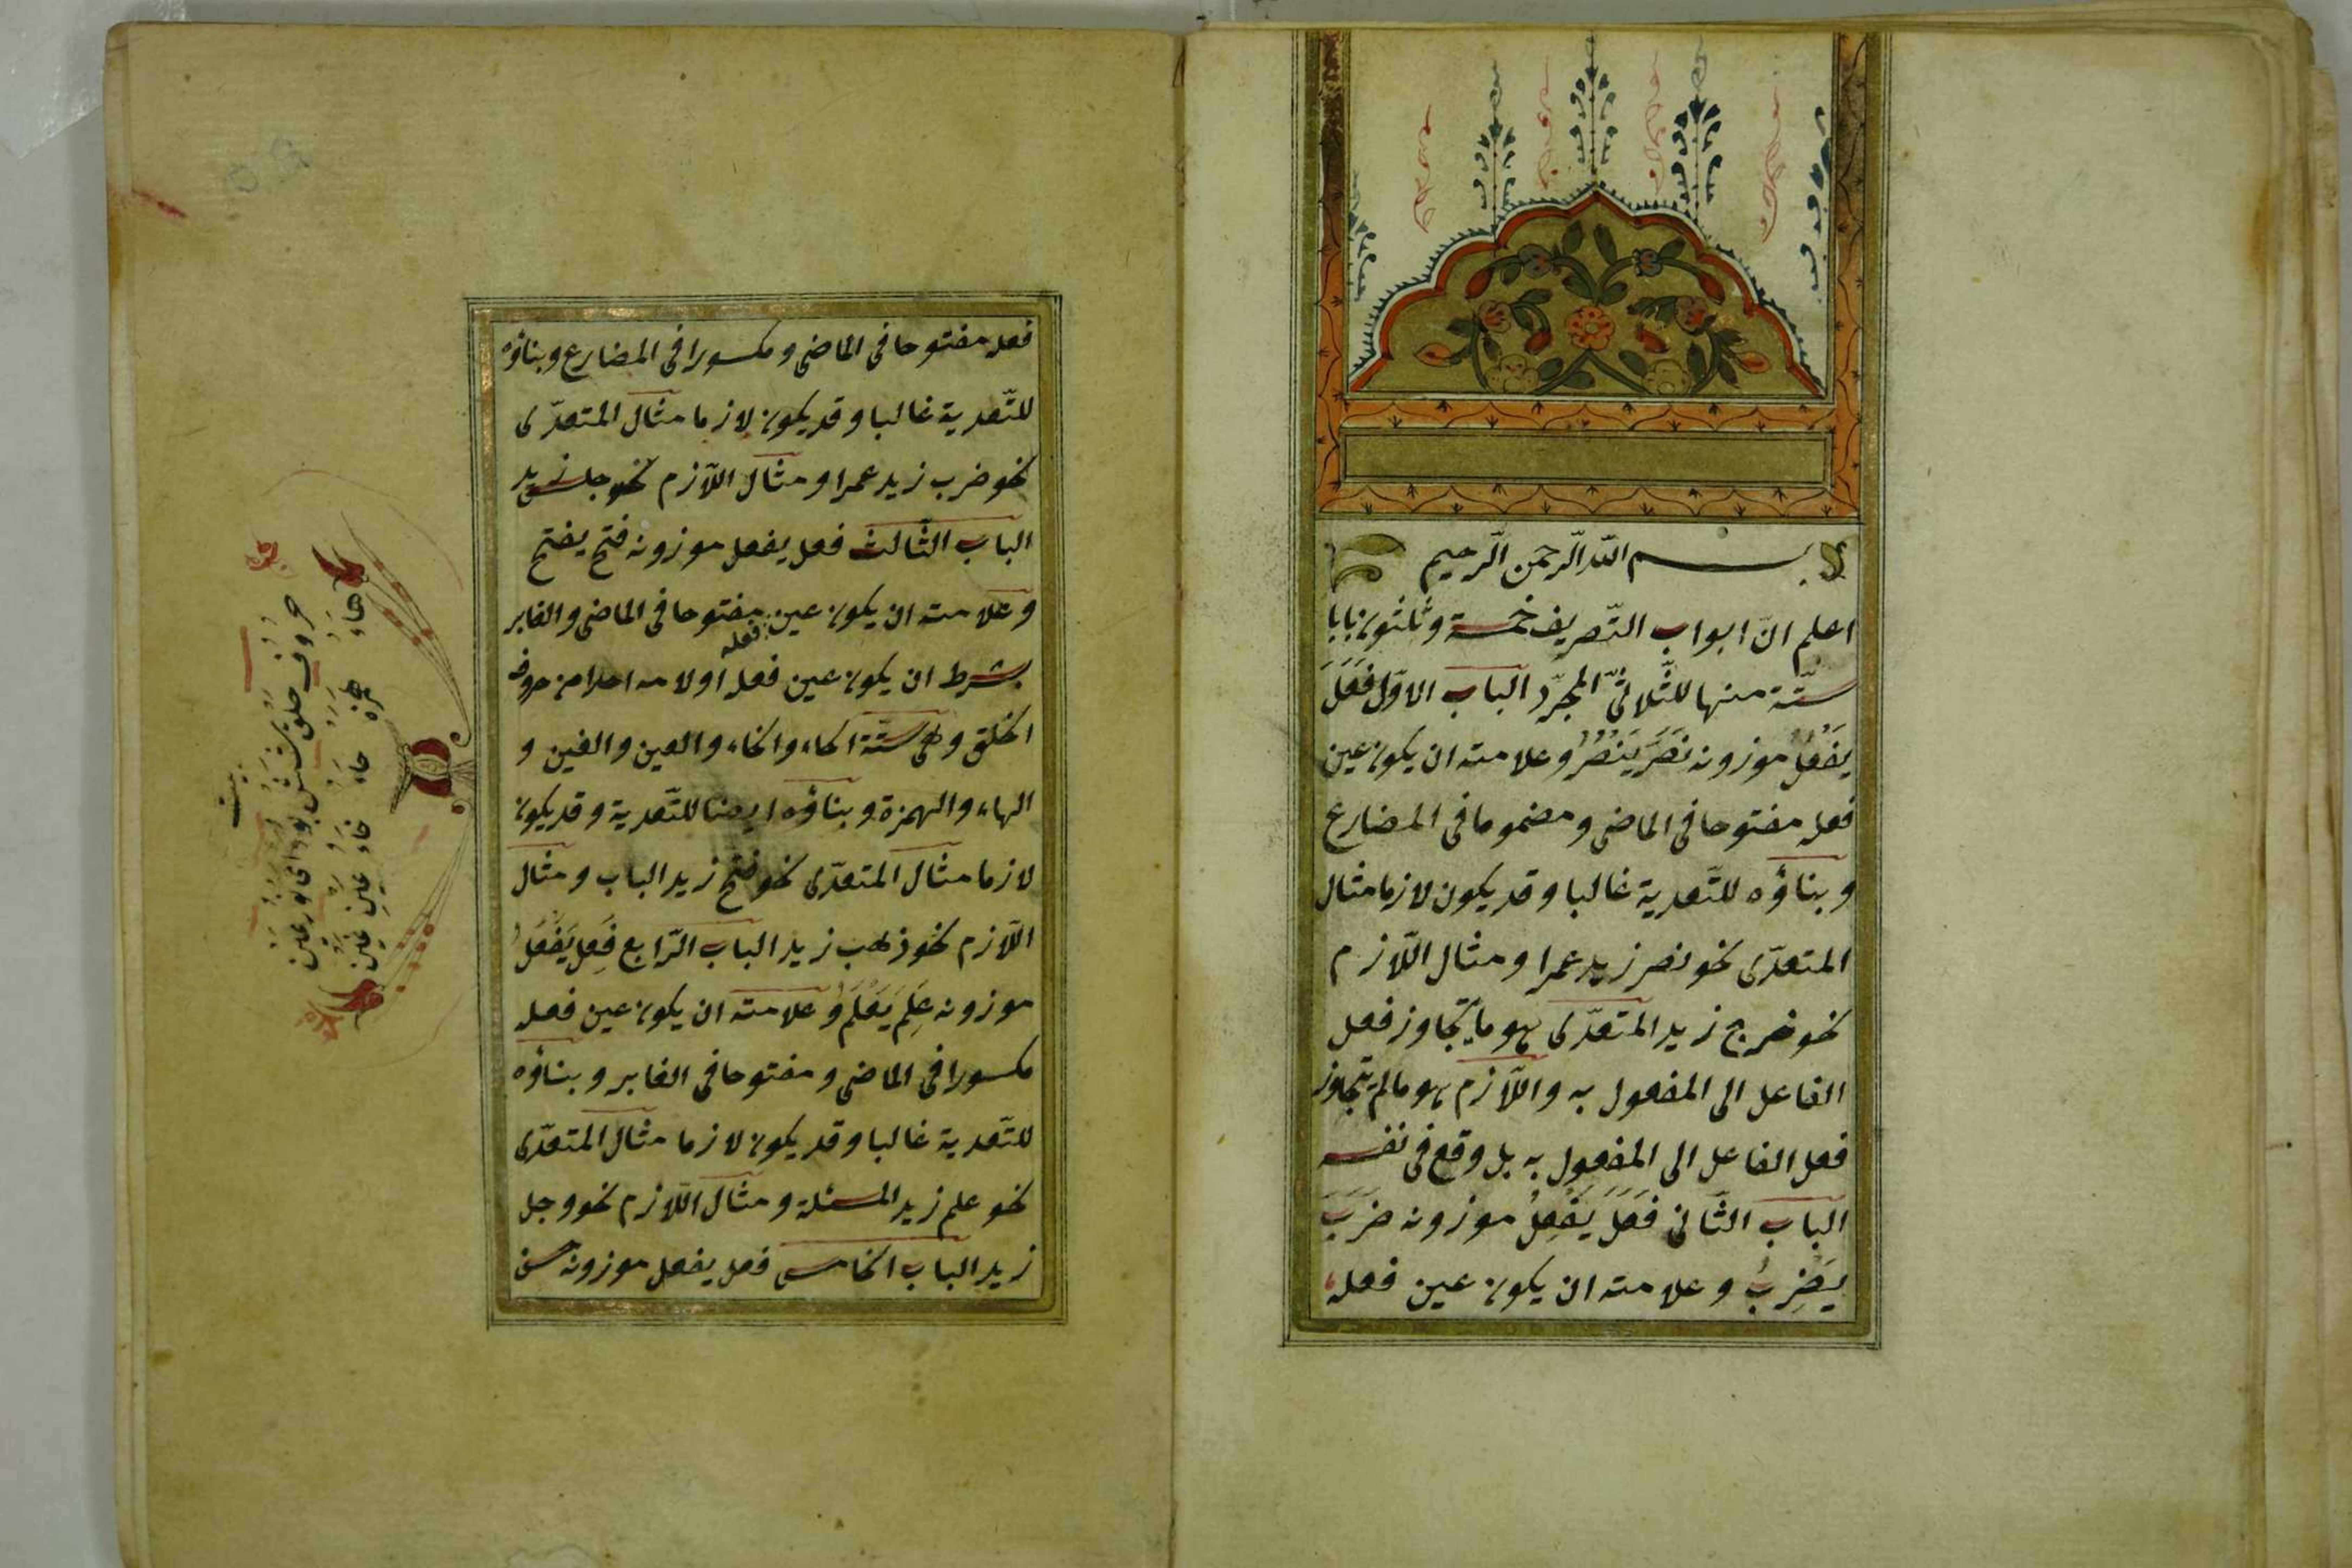 بسم الله الرّحمن الرّحيم
اعلم انّ ابواب التّصريف خمسة وثلثون بابا
ستّة منها للثّلاثىّ المجرّد الباب الاوّل فَعَلَ
يَفْعُلُ موزونه نَصَرَ يَنْصُرُ وعلامته ان يكون عين
فعله مفتوحا فى الماضى ومضموما فى المضارع
وبناؤه للتّعدية غالبا وقد يكون لازما مثال
المتعدّى نحو نصر زيد عمرا ومثال اللّازم
نحو خرج زيد المتعدّى هو ما يتجاوز فعل
الفاعل الى المفعول به واللّازم هو مالم يتجاوز
فعل الفاعل الى المفعول به بل وقع فى نفسه
الباب الثّانى فَعَلَ يَفْعِلُ موزونه ضَرَبَ
يَضْرِبُ وعلامته ان يكون عين فعله
فعله مفتوحا فى الماضى ومكسورا فى المضارع وبناؤه
للتّعدية غالبا وقد يكون لازما مثال المتعدّى
نحو ضرب زيد عمرا ومثال اللّازم نحو جلس زيد
الباب الثّالث فعل يفعل موزونه فتح يفتح
وعلامته ان يكون عين فعله مفتوحا فى الماضى والغابر
بشرط ان يكون عين فعله اولامه احدا من حروف
الحلق وهى ستّة الحاء والخاء والعين والغين و
الهاء والهمزة وبناؤه ايضا للتّعدية وقد يكون
لازما مثال المتعدّى نحو فتح زيد الباب ومثال
اللّازم نحو ذهب زيد الباب الرّابع فَعِلَ يَفْعَلُ
موزونه عَلِمَ يَعْلَمُ وعلامته ان يكون عين فعله
مكسورا فى الماضى ومفتوحا فى الغابر وبناؤه
للتّعدية غالبا وقد يكون لازما مثال المتعدّى
نحو علم زيد المسئلة ومثال اللّازم نحو وجل
زيد الباب الخامس فعل يفعل موزونه حسن
بيت
حروف حلق شش بود اى نور عين
هاء همزه حاء خاء عين غين